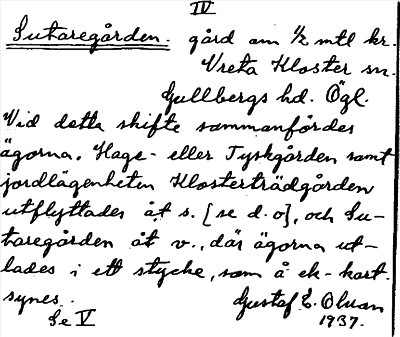 IV
Sutaregården. gård om 1/2 mtl kr.
Vreta Kloster sn.
Gullbergs hd. Ögl.
Vid detta skifte sammanfördes
ägorna. Hage- eller Tyskgården samt
jordlägenheten Klosterträdgården
utflyttades åt s. [se d. o], och Su-
taregården åt v., där ägorna ut-
lades i ett stycke, som å ek-kart.
synes.
Gustaf E. Olson
Se V
1937.